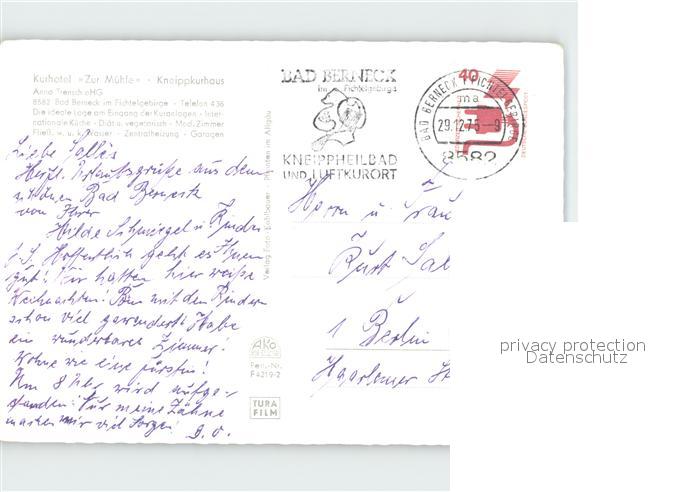 Kurhotel »Zur Mühle« · Kneippkurhaus
Anna Trensch oHG
8582 Bad Berneck im Fichtelgebirge - Telefon 436
Die ideale Lage am Eingang der Kuranlagen - Inter-
nationale Küche - Diät u. vegetarisch - Mod. Zimmer
Fließ. w. u. k. Wasser - Zentralheizung - Garagen
Liebe
Herzl. Urlaubsgrüße aus dem
schönen Bad Berneck
von Ihrer
Hilde u. Kinder
Hoffentlich geht es Ihnen
gut! Wir hatten hier weiße
Weihnachten! Bin mit den Kindern
schon viel gewandert! Habe
ein wunderbares Zimmer!
Wohne wie eine Fürstin!
Um 8 Uhr wird aufge-
standen! Nur meine Zähne
machen mir viel Sorgen! D. O.
BAD BERNECK
im Fichtelgebirge
KNEIPPHEILBAD
UND LUFTKURORT
BAD BERNECK I FICHTELGEBIRGE
ma
29.12.75-9
8582
40
Herrn u. Frau
Kurt
1 Berlin
Haarlemer
AKO
Fern.-Nr.
F4219-2
TURA
FILM
privacy protection
Datenschutz